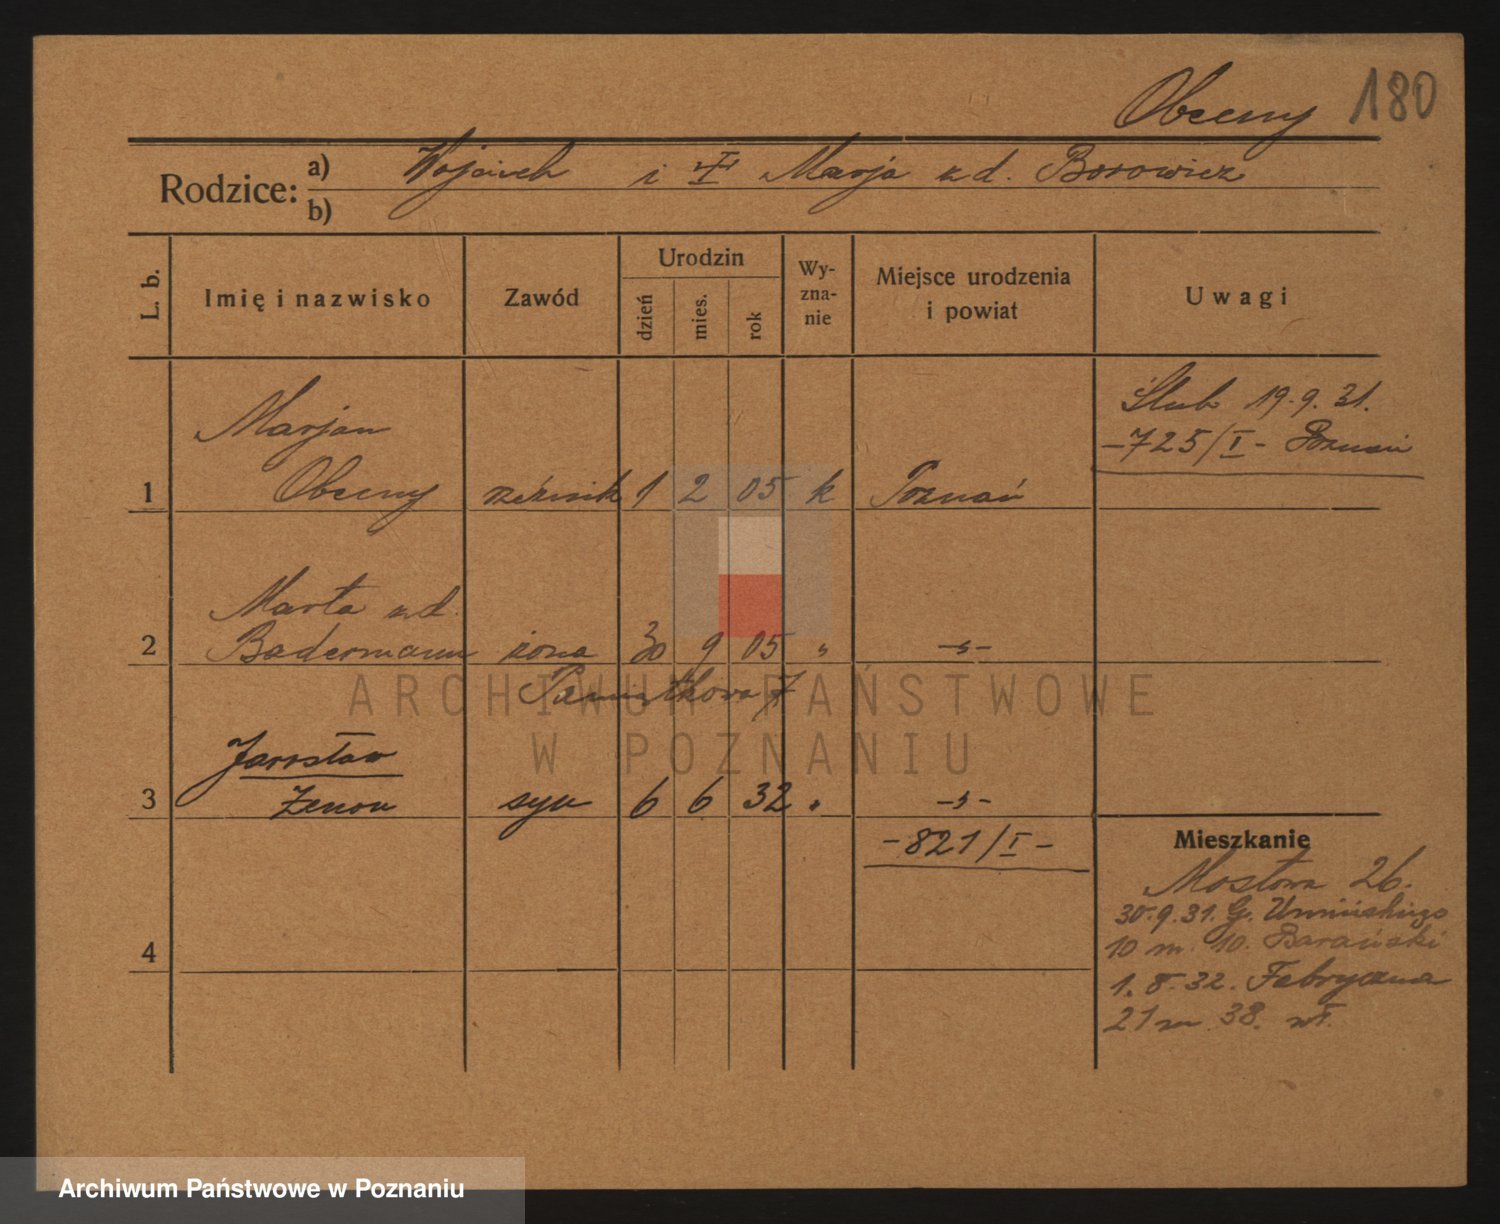 Obecny 180
Rodzice: a) Wojciech i Marja z d. Borowicz
b)
L. b. Imię i nazwisko Zawód Urodzin dzień mies. rok Wy-zna-nie Miejsce urodzenia i powiat Uwagi
Ślub 19.9.31.
-725/I- Poznań
Marjan
1 Obecny rzeźnik 1 2 05 k Poznań
Marta z d.
2 Badermann żona 30 9 05 " -„-
Pamiątkowa 7
Jarosław
3 Zenon syn 6 6 32 " -„-
-821/I-
Mieszkanie
Mostowa 26.
30.9.31. G. Umińskiego
10 m. 10. Barański
1.8.32. Fabryczna
21 m. 38. wł.
4
ARCHIWUM PAŃSTWOWE
W POZNANIU
Archiwum Państwowe w Poznaniu